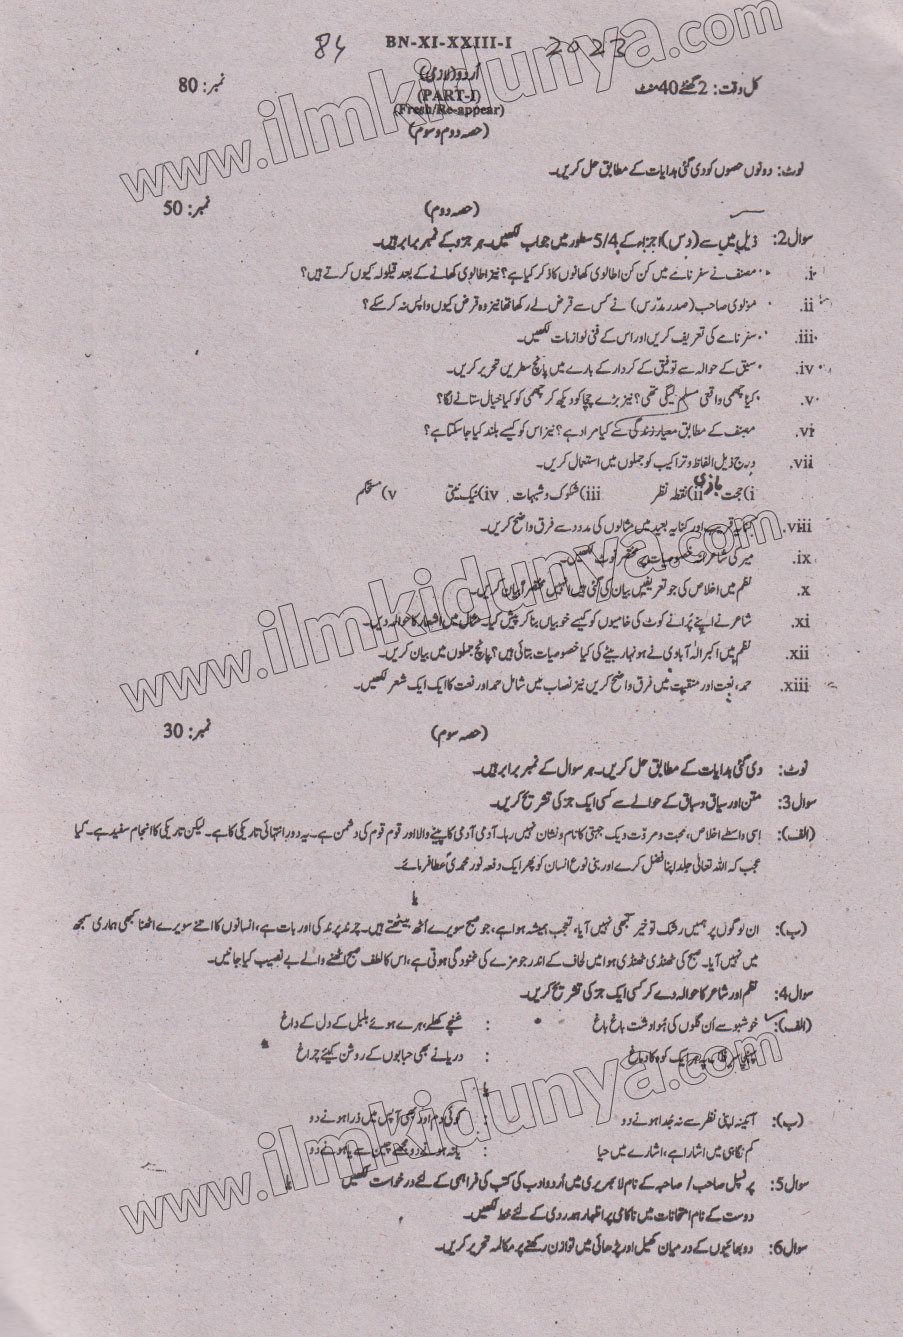 84 BN-XI-XXIII-I 2023
اُردو (لازمی)
کل وقت: 2 گھنٹے 40 منٹ (PART-I) نمبر: 80
(Fresh/Re-appear)
(حصہ دوم و سوم)
نوٹ: دونوں حصوں کو دی گئی ہدایات کے مطابق حل کریں۔
(حصہ دوم) نمبر: 50
سوال2: ذیل میں سے (دس) اجزاء کے 5/4 سطور میں جواب لکھیں۔ ہر جزو کے نمبر برابر ہیں۔
i. مصنف نے سفر نامے میں کن کن اطالوی کھانوں کا ذکر کیا ہے؟ نیز اطالوی کھانے کے بعد قیلولہ کیوں کرتے ہیں؟
ii. مولوی صاحب (صدر مدرّس) نے کس سے قرض لے رکھا تھا نیز وہ قرض کیوں واپس نہ کر سکے؟
iii. سفر نامے کی تعریف کریں اور اس کے فنی لوازمات لکھیں۔
iv. سبق کے حوالہ سے توفیق کے کردار کے بارے میں پانچ سطریں تحریر کریں۔
v. کیا چھمی واقعی مسلم لیگی تھی؟ نیز بڑے چچا کو دیکھ کر چھمی کو کیا خیال ستانے لگا؟
vi. مصنف کے مطابق معیار زندگی سے کیا مراد ہے؟ نیز اس کو کیسے بلند کیا جا سکتا ہے؟
vii. درج ذیل الفاظ و تراکیب کو جملوں میں استعمال کریں۔
i) حجت بازی ii) نقطہ نظر iii) شکوک و شبہات iv) نیک نیتی v) مستحکم
viii. کنایہ قریب اور کنایہ بعید میں مثالوں کی مدد سے فرق واضح کریں۔
ix. میر کی شاعرانہ خصوصیات پر مختصر نوٹ لکھیں۔
x. نظم میں اخلاص کی جو تعریفیں بیان کی گئی ہیں انہیں مختصراً بیان کریں۔
xi. شاعر نے اپنے پُرانے کوٹ کی خامیوں کو کیسے خوبیاں بنا کر پیش کیا۔ مثال میں اشعار کا حوالہ دیں۔
xii. نظم میں اکبر الٰہ آبادی نے ہونہار بیٹے کی کیا خصوصیات بتائی ہیں؟ پانچ جملوں میں بیان کریں۔
xiii. حمد، نعت اور منقبت میں فرق واضح کریں نیز نصاب میں شامل حمد اور نعت کا ایک ایک شعر لکھیں۔
(حصہ سوم) نمبر: 30
نوٹ: دی گئی ہدایات کے مطابق حل کریں۔ ہر سوال کے نمبر برابر ہیں۔
سوال3: متن اور سیاق و سباق کے حوالے سے کسی ایک جز کی تشریح کریں۔
(الف): اِسی واسطے اخلاص، محبت و مروّت و یک جہتی کا نام و نشان نہیں رہا۔ آدمی آدمی کا پینے والا اور قوم قوم کی دشمن ہے۔ یہ دور انتہائی تاریکی کا ہے۔ لیکن تاریکی کا انجام سفید ہے۔ کیا
عجب کہ اللہ تعالیٰ جلد اپنا فضل کرے اور بنی نوع انسان کو پھر ایک دفعہ نور محمدیؐ عطا فرمائے۔
یا
(ب): ان لوگوں پر ہمیں رشک تو خیر کبھی نہیں آیا، تعجب ہمیشہ ہوا ہے، جو صبح سویرے اُٹھ بیٹھتے ہیں۔ چرند پرند کی اور بات ہے، انسانوں کا اتنے سویرے اٹھنا کبھی ہماری سمجھ
میں نہیں آیا۔ صبح کی ٹھنڈی ٹھنڈی ہوا میں لحاف کے اندر جو مزے کی غنودگی ہوتی ہے، اس کا لطف صبح اٹھنے والے بے نصیب کیا جانیں۔
سوال4: نظم اور شاعر کا حوالہ دے کر کسی ایک جز کی تشریح کریں۔
(الف): خوشبو سے اُن گلوں کی ہُوا دشت باغ باغ : غنچے کھلے، ہرے ہوئے بلبل کے دل کے داغ
پہ ہر ایک کوہ کا دماغ : دریا نے بھی حبابوں کے روشن کیئے چراغ
یا
(ب): آئینہ اپنی نظر سے نہ جُدا ہونے دو : کوئی دم اور بھی آپس میں ذرا ہونے دو
کم نگاہی میں اشارا ہے، اشارے میں حیا : یا نہ ہونے دو مجھے چین سے یا ہونے دو
سوال5: پرنسپل صاحب / صاحبہ کے نام لائبریری میں اُردو ادب کی کتب کی فراہمی کے لئے درخواست لکھیں یا
دوست کے نام امتحانات میں ناکامی پر اظہارِ ہمدردی کے لئے خط لکھیں۔
سوال6: دو بھائیوں کے درمیان کھیل اور پڑھائی میں توازن رکھنے پر مکالمہ تحریر کریں۔
www.ilmkidunya.com
www.ilmkidunya.com
www.ilmkidunya.com